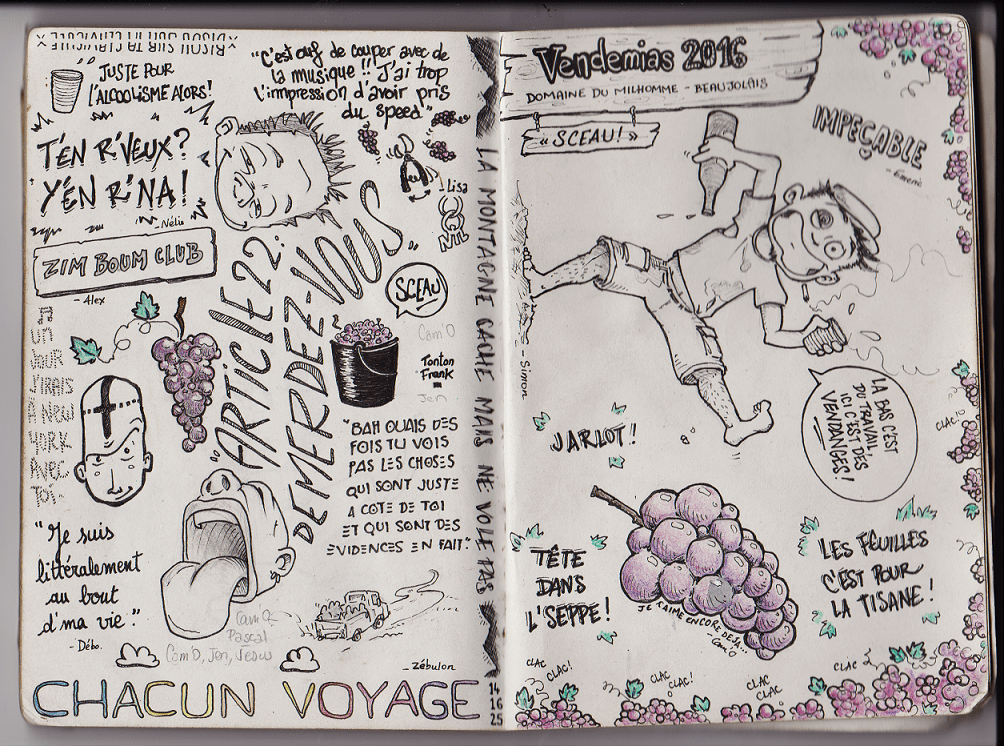 × BISOU SUR TA CLAVICULE ×
JUSTE POUR
L'ALCOOLISME ALORS!
"C'est ouf de couper avec de
la musique !! J'ai trop
l'impression d'avoir pris
du speed"
T'EN R'VEUX?
Y'EN R'NA!
- Nélis
ZIM BOUM CLUB
- Alex
UN
JOUR
J'IRAIS
À NEW
YORK
AVEC
TOI
"Je suis
littéralement
au bout
d'ma vie".
- Débo.
"ARTICLE 22:
DEMERDEZ-VOUS"
Lisa
SCEAU
Cam'O
Tonton
Frank
=
Jen
"BAH OUAIS DES
FOIS TU VOIS
PAS LES CHOSES
QUI SONT JUSTE
A COTE DE TOI
ET QUI SONT DES
EVIDENCES EN FAIT".
Cam'O
Pascal
Cam'O, Jen, Jesus
- Zébulon
CHACUN VOYAGE
LA MONTAGNE CACHE MAIS NE VOLE PAS
- Simon
14
16
25
Vendemias 2016
DOMAINE DU MILHOMME - BEAUJOLAIS
« SCEAU! »
IMPEÇABLE
- Emeric
LA BAS C'EST
DU TRAVAIL,
ICI C'EST DES
VENDANGES!
JARLOT!
CLAC
CLAC!
TÊTE
DANS
L'SEPPE!
JE T'AIME ENCORE DEJA...
- Cam'O
LES FEUILLES
C'EST POUR
LA TISANE!
CLAC
CLAC!
CLAC
CLAC!
CLAC
CLAC
CLAC
CLAC